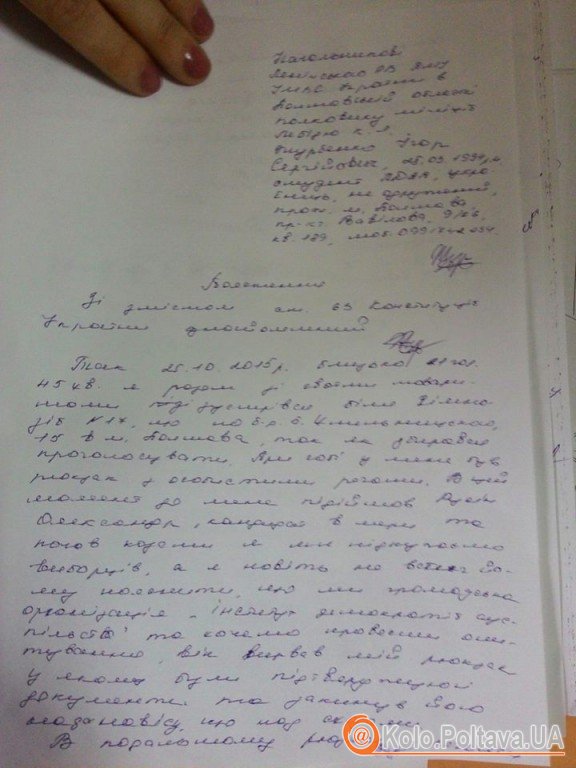 Начальникові
Ленінського РВ
УМВС України в
Полтавській області
полковнику міліції
Ігор
Сергійович, 25.03.1994,
студент украї-
нець, не одружений,
прож. м. Полтава,
пр-кт Вавілова,
кв. 189, моб. 099
Пояснення
Зі змістом ст. 63 Конституції
України ознайомлений
Так 25.10.2015р. близько 21 год.
45 хв. я разом зі своїми товари-
шами біля Гімна-
зії №17, що по б-р. Б. Хмельницького,
15 в м. Полтава, так як збирався
проголосувати. При собі у мене був
рюкзак з особистими речами. В цей
момент до мене підійшов
Олександр, кандидат в мери та
почав казати що ми підкупаємо
виборців, а я навіть не встиг йо-
му пояснити, що ми громадська
організація „інститут демократії сус-
пільства" та хочемо провести опи-
тування, він вирвав мій рюкзак
у якому були підтверджуючі
документи та закинув його
що над
В подальшому
Kolo.Poltava.UA